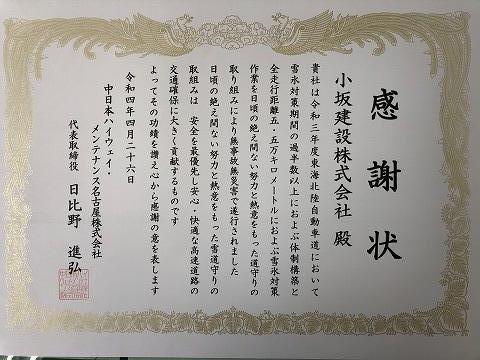 感謝状
小坂建設株式会社 殿
貴社は令和三年度東海北陸自動車道において
雪氷対策期間の過半数以上におよぶ体制構築と
全走行距離五・五万キロメートルにおよぶ雪氷対策
作業を日頃の絶え間ない努力と熱意をもった道守りの
取り組みにより無事故無災害で遂行されました
日頃の絶え間ない努力と熱意をもった雪道守りの
取組みは 安全を最優先し安心・快適な高速道路の
交通確保に大きく貢献するものです
よってその功績を讃え心から感謝の意を表します
令和四年四月二十六日
中日本ハイウェイ・
メンテナンス名古屋株式会社
代表取締役 日比野 進弘